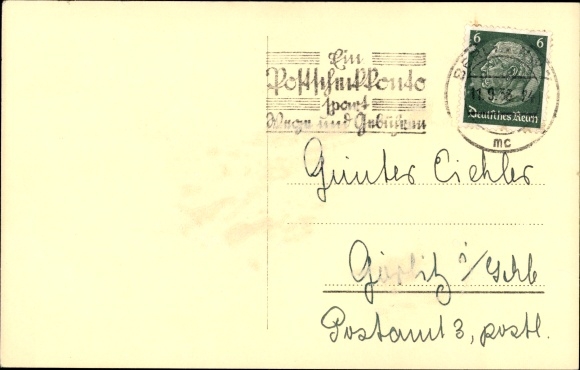 6 6
Deutsches Reich
Ein
Postscheckkonto
spart
Wege und Gebühren
11.9.
mc
Günter Eichler
Görlitz i/Schl
Postamt 3, postl.